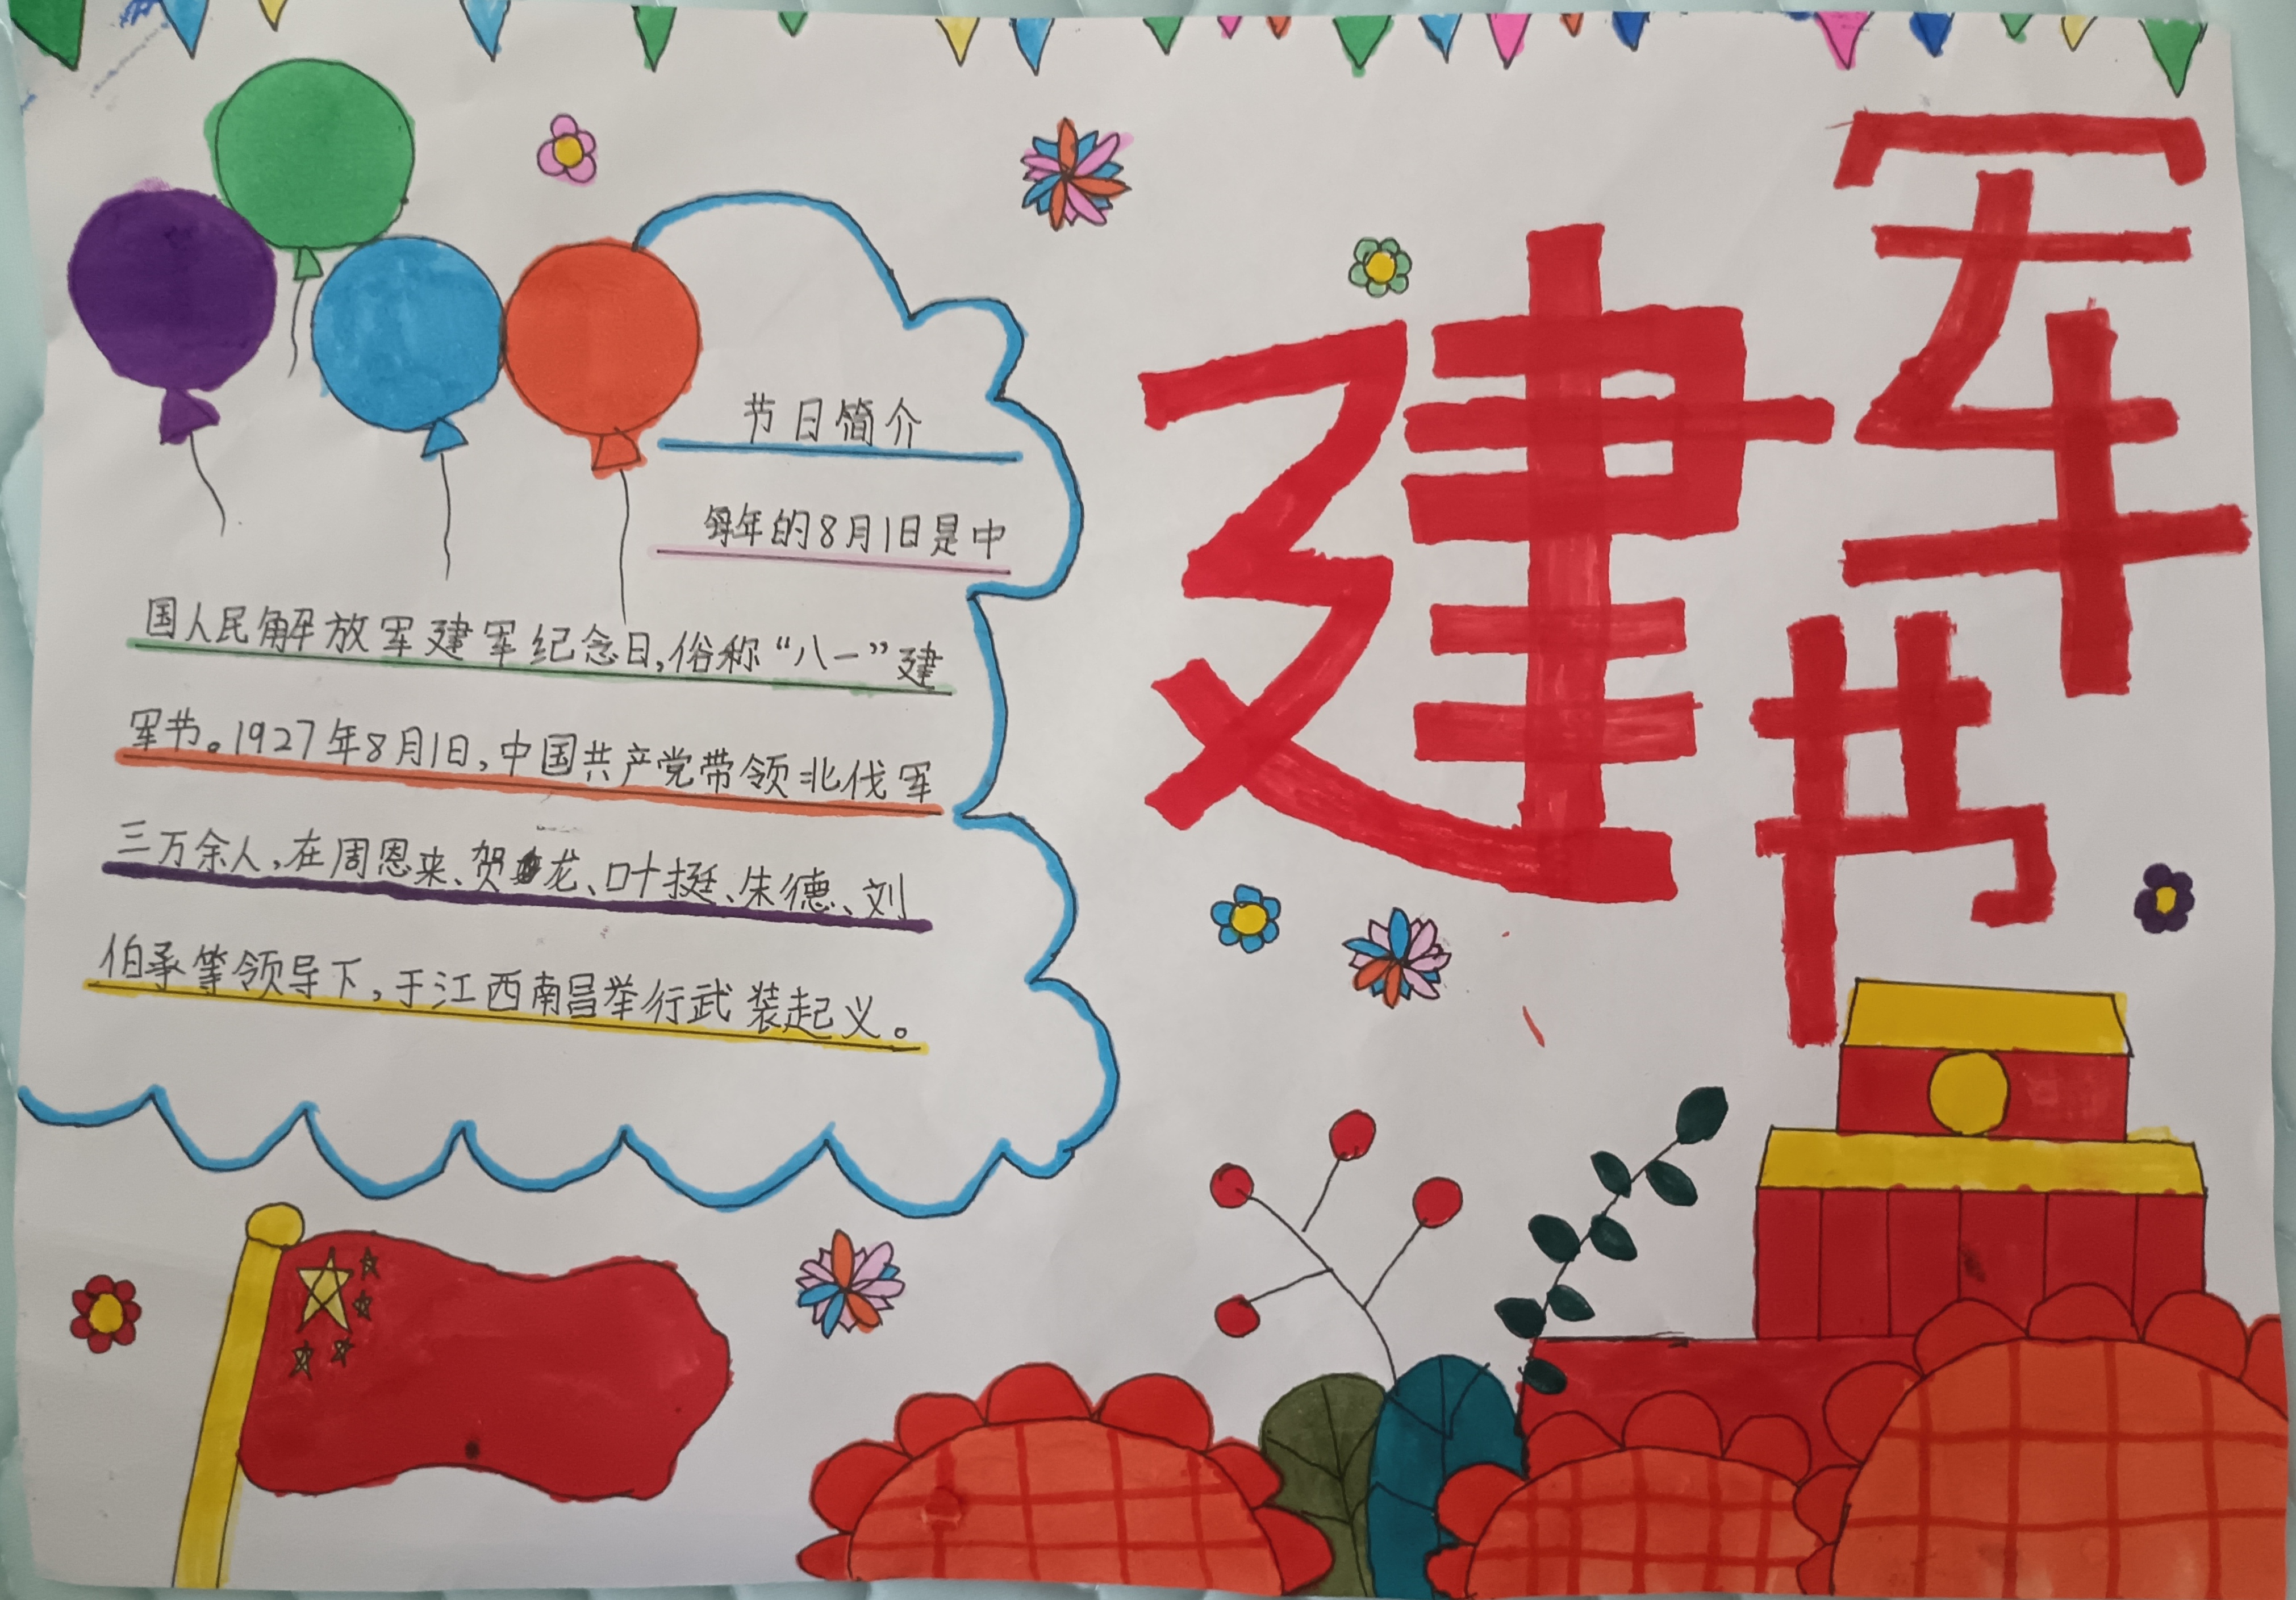 建军节
节日简介
每年的8月1日是中
国人民解放军建军纪念日,俗称“八一”建
军节。1927年8月1日,中国共产党带领北伐军
三万余人,在周恩来、贺龙、叶挺、朱德、刘
伯承等领导下,于江西南昌举行武装起义。